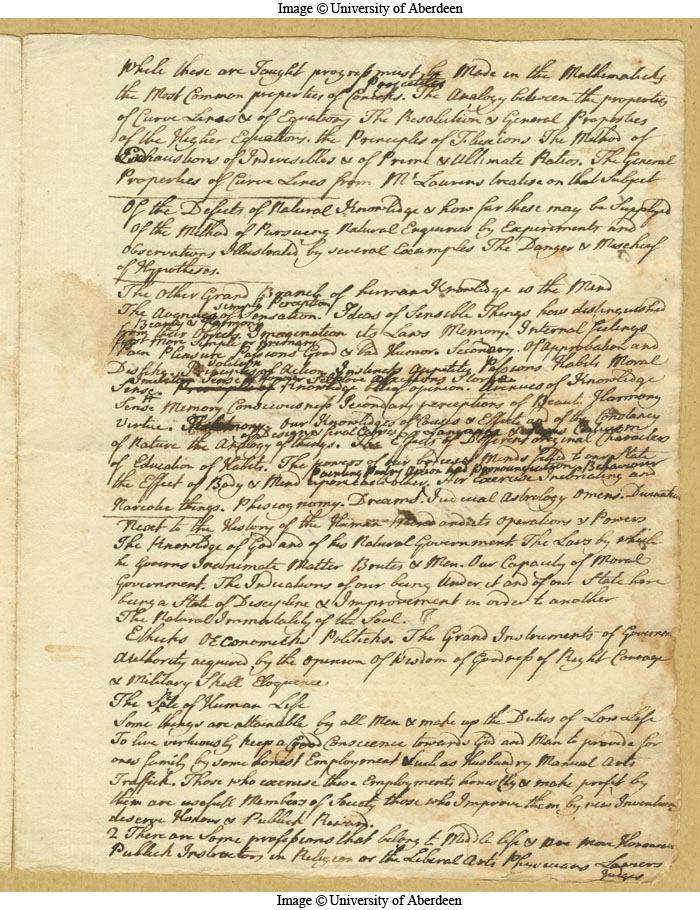 Image © University of Aberdeen
While these are Taught progress must be Made in the Mathematicks
Projectiles
the Most Common properties of Conicks. The Analogy between the properties
of Curve Lines & of Equations The Resolution & General Properties
of the Higher Equations. the Principles of Fluxions The Method of
Exhaustions of Indivisibles & of Prime & Ultimate Ratios. The General
Properties of Curve Lines from Mr Laurens treatise on that Subject
Of the Defects of Natural Knowledge & how far these may be Supplyed
Of the Method of Pursuing Natural Enquiries by Experiments and
Observations Illustrated by several Examples The Danger & Mischief
of Hypotheses.
The Other Grand Branch of human Knowledge is the Mind
Simple Perception
The Sensation. Ideas of Sensible Things how distinguished
Beauty & Harmony
from their Objects. Imagination its Laws Memory. Internal feelings
primary
Pain Pleasure Passions Good & bad Humor. Secondary. Of Approbation and
Volition
Dislike. Principles of Action Instincts Appetites Passions Habits Moral
Imitation Sense of Honour Self Love
Sense Knowledge Belief opinion. Avenues of Knowledge
Sense Memory Consciousness Secondary perceptions of Beauty Harmony
Virtue. Our Knowledge of Causes & Effects and of the Constancy
of Design & final Causes
of Nature the Analogy of things. The Effects of Different original Characters
of Education of Habits. The powers of our Minds fitted to our State
Painting Poetry Action and Pronounciation Behaviour
the Effect of Body & Mind upon each other. Air Exercise Inebriating and
Narcotic things. Phisiognomy. Dreams. Judicial Astrology Omens. Divination
Next to the History of the Human Mind and its Operations & Powers
The Knowledge of God and of his Natural Government. The Laws by which
he Governs Inanimate Matter Brutes & Men. Our Capacity of Moral
Government. The Indications of our being Under it and of our State here
being a State of Discipline & Improvement in order to another
The Natural Immortality of the Soul.
Ethicks Oeconomicks Politicks. The Grand Instruments of Governm
Authority acquired by the openion Of Wisdom of Goodness of Right Courage
& Military Skill Eloquence
The State of Human Life
Some things are attainable by all Men & make up the Duties of Low Life
To live virtuously keep a Good Conscience towards God and Man to provide for
ones family by some honest Employment Such as Husbandry Manual Arts
Traffick. Those who exercise these Employments honestly & make profit by
them are usefull Members of Societ, those who Improve them by new Inventions
deserve Honour & Publick Reward.
2 There are Some professions that belong to Middle life & are more Honourable
Publick Instructors in Religion or the Liberal Arts Physicians Lawiers
Judges
Image © University of Aberdeen